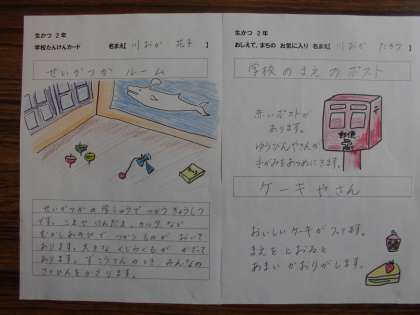 生かつ 2年
学校たんけんカード 名まえ【 川おか 花子 】
せいかつか ルーム
せいかつかの学しゅうでつかうきょうしつ
です。こまやけんだま、カルタなど
むかしあそびでつかうものがおいて
あります。大きなくじらぐもがかざって
あります。ずこうてんのとき、みんなの
さくひんをかざります。
生かつ 2年
おしえて、まちの お気に入り 名まえ【 川おか たかゆき 】
学校のまえのポスト
赤いポストが
あります。
ゆうびんやさんが
手がみをあつめにきます。
郵便
ケーキやさん
おいしいケーキがうってます。
まえをとおると
あまいかおりがします。